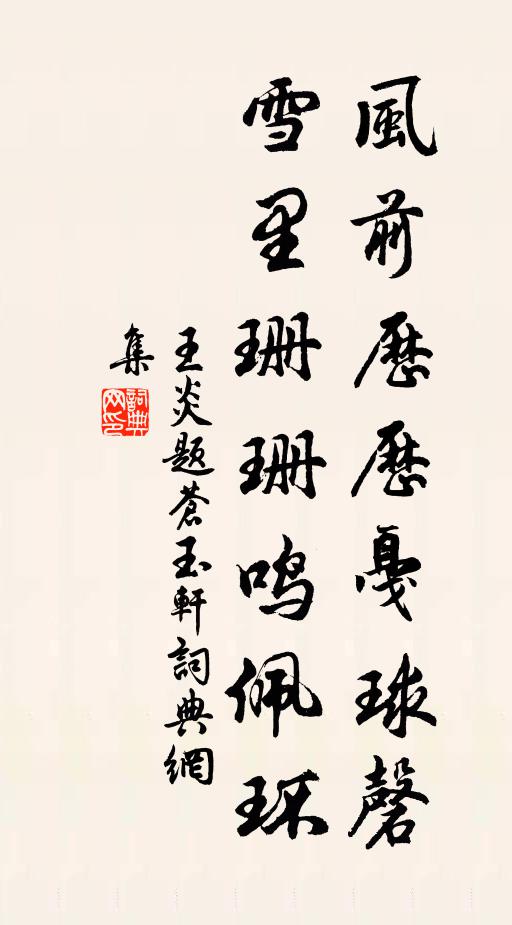 風前歷歷戛球磬
雪里珊珊鳴佩环
王炎題蒼玉軒詞典網
集
詞典
网印